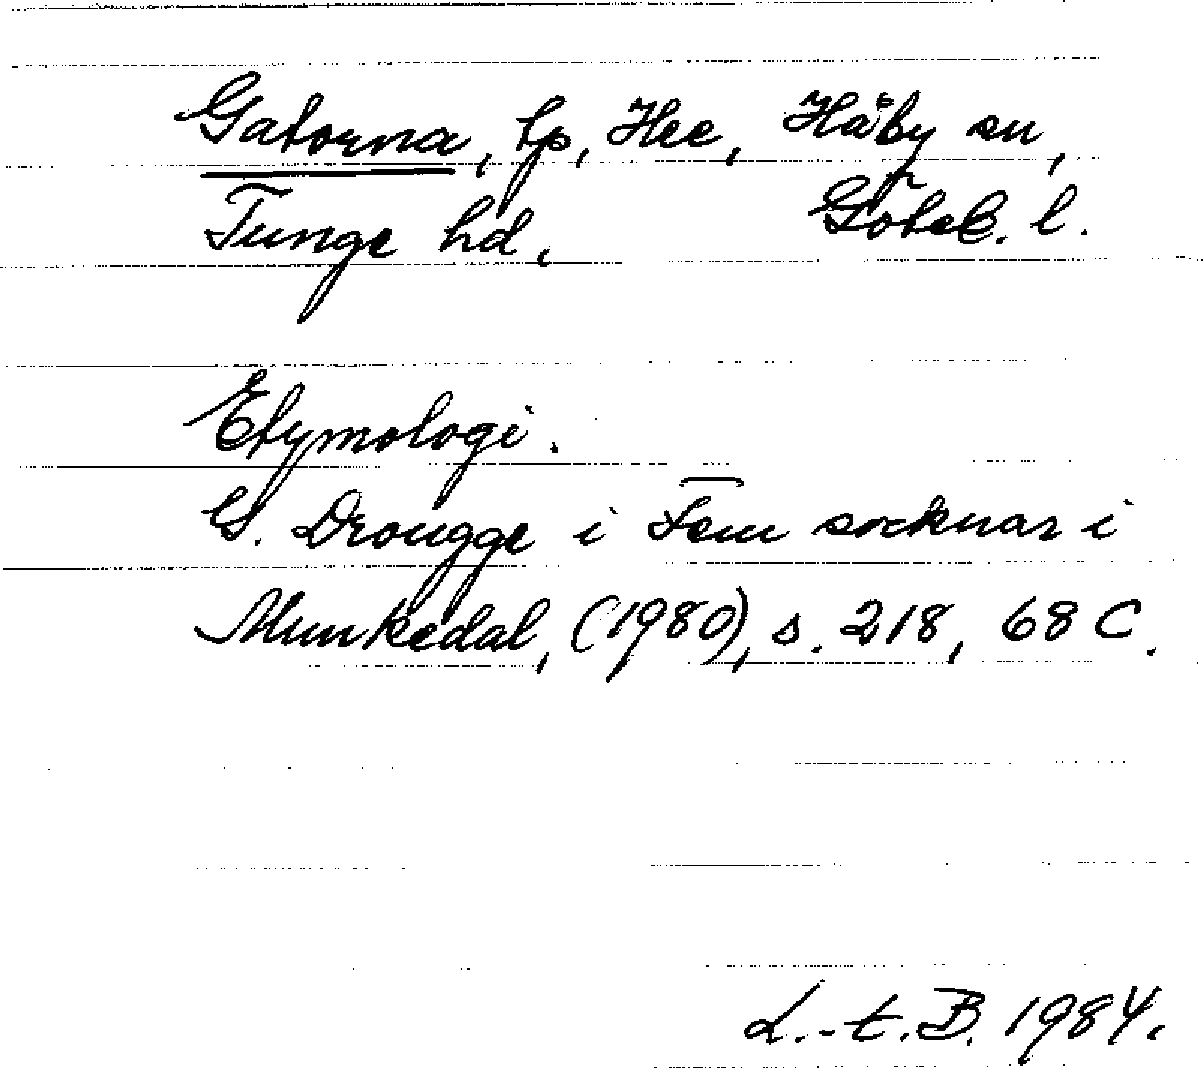 Gatorna, tp, Hee, Håby sn,
Tunge hd. Göteb. l.
Etymologi.
G. Drougge i Fem socknar i
Munkedal, (1980), s. 218, 68 C.
L.-t. B. 1984.